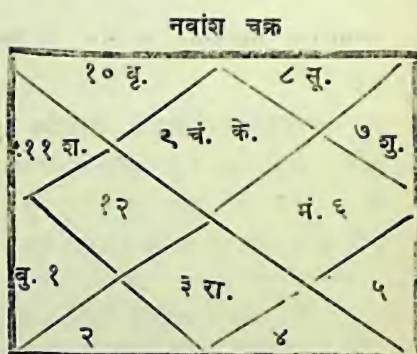 नवांश चक्र
१० बृ.
८ सू.
११ श.
९ चं. के.
७ शु.
१२
मं. ६
बु. १
३ रा.
५
२
४